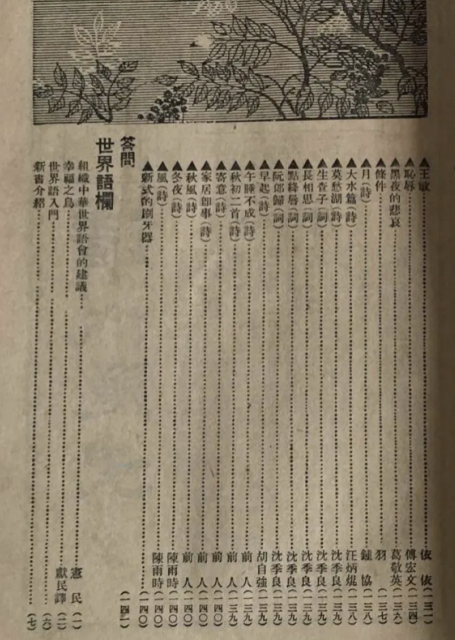 ▲王敏 依依(一三一)
▲恥辱 傅宏文(一三四)
▲黑夜的悲哀 葛敬英(一三六)
▲條件 羽(一三七)
▲月(詩) 鍾協(一三八)
▲大水篇(詩) 汪炳焜(一三八)
▲莫愁湖(詩) 沈季良(一三九)
▲生查子(詞) 沈季良(一三九)
▲長相思(詞) 沈季良(一三九)
▲點絳唇(詞) 沈季良(一三九)
▲阮郎歸(詞) 沈季良(一三九)
▲早起(詩) 胡自強(一三九)
▲午睡不成(詩) 前人(一三九)
▲秋初二首(詩) 前人(一三九)
▲寄意(詩) 前人(一四〇)
▲家居即事(詩) 前人(一四〇)
▲秋風(詩) 前人(一四〇)
▲冬夜(詩) 陳雨時(一四〇)
▲風(詩) 陳雨時(一四〇)
▲新式的刷牙器
答問 (一四一)
世界語欄
組織中華世界語會的建議 憲民(一)
幸福之鳥 獻民譯(二)
世界語入門 (六)
新書介紹 (七)